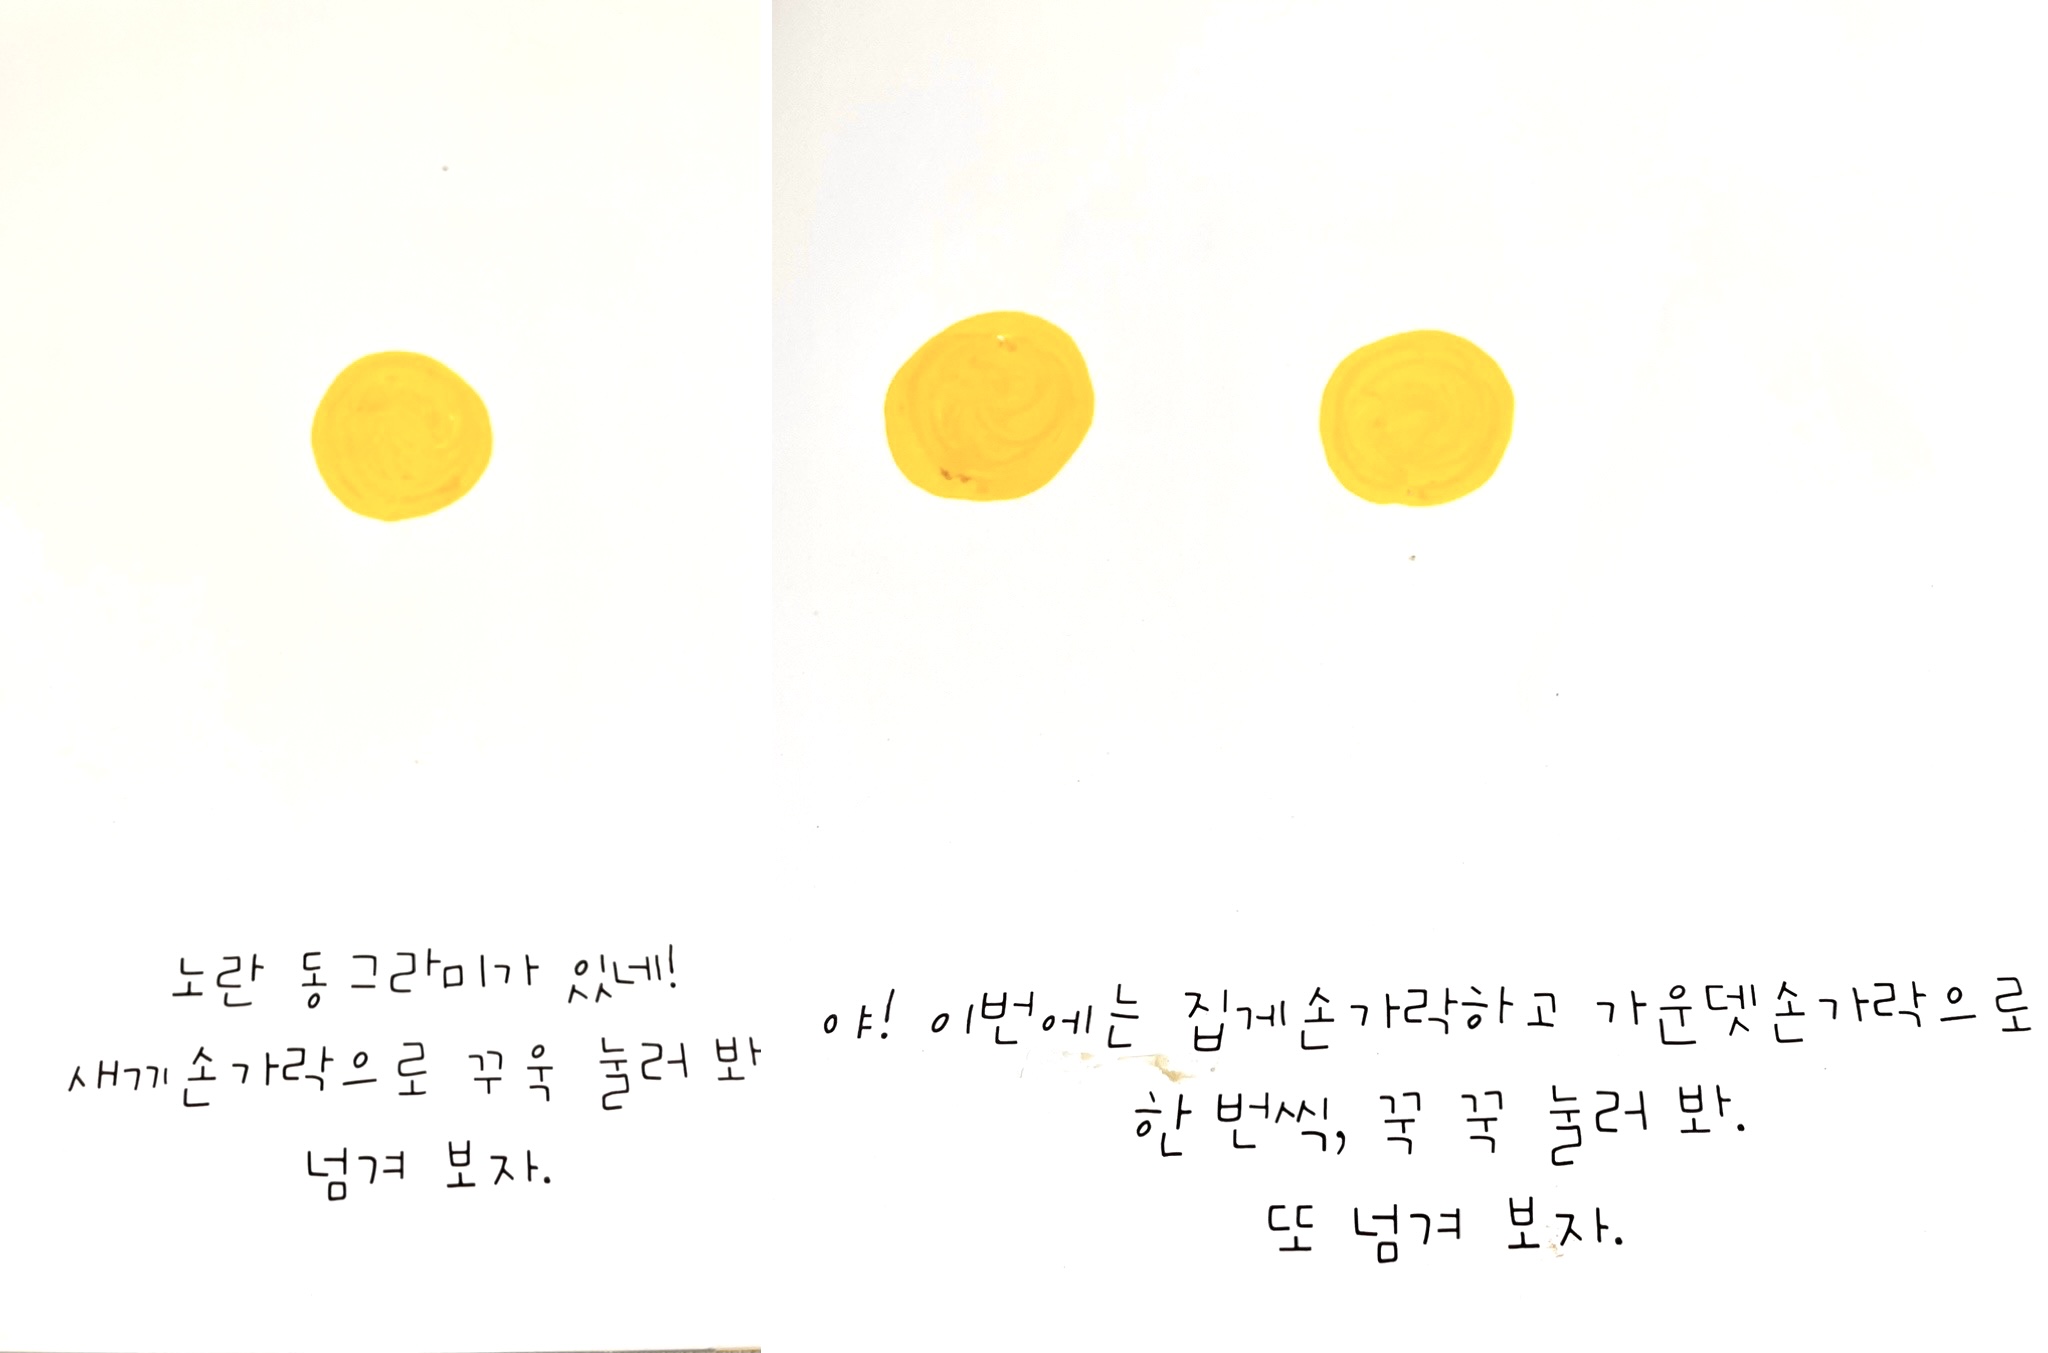 노란 동그라미가 있네!
새끼손가락으로 꾸욱 눌러 봐
넘겨 보자.
야! 이번에는 집게손가락하고 가운뎃손가락으로
한 번씩, 꾹 꾹 눌러 봐.
또 넘겨 보자.